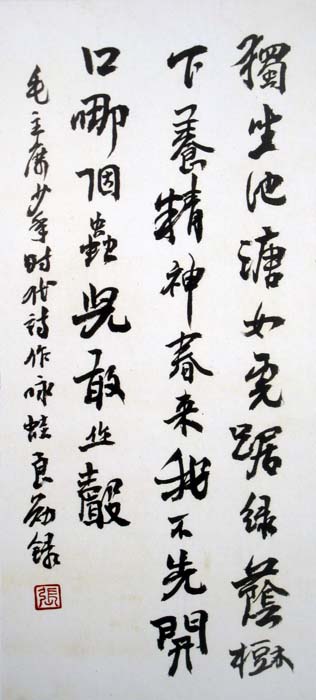 獨坐池塘如虎踞綠蔭樹
下養精神春来我不先開
口哪個蟲兒敢作聲
毛主席少年时代詩作咏蛙良錄
張